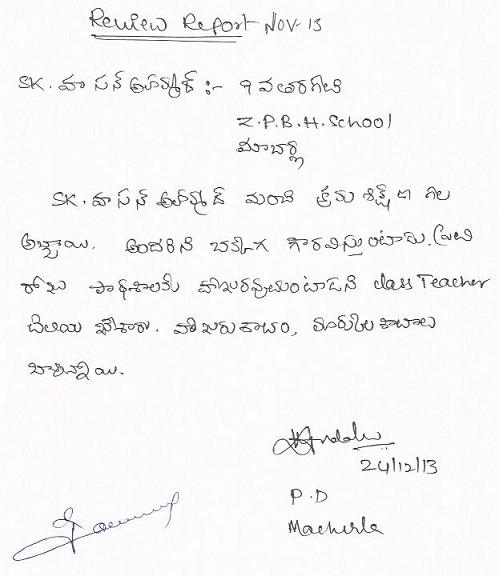 Review Report Nov-13
SK. హసన్ అహ్మద్ :- 9 వ తరగతి
Z.P.B.H.School
మాచర్ల
SK. హసన్ అహ్మద్ మంచి క్రమ శిక్షణ గల
అబ్బాయి. అందరిని బాగా గౌరవిస్తుంటాడు. ప్రతి
రోజు పాఠశాలకు హాజరవుతుంటాడని class Teacher
తెలియ చేశారు. హాజరు శాతం, మార్కుల శాతాలు
బాగున్నాయి.
24/12/13
P.D
Macherla